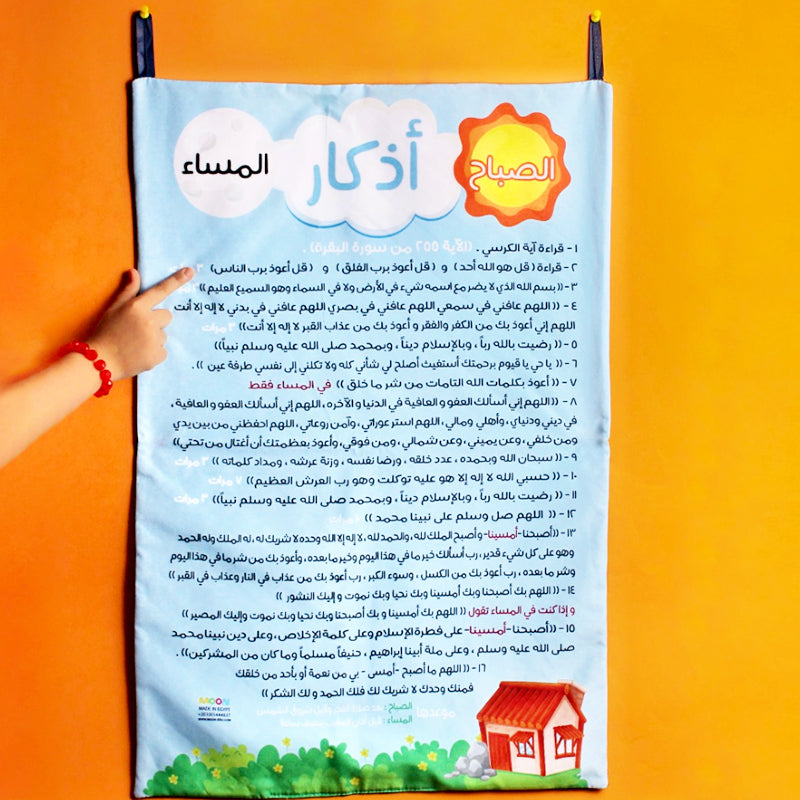 أذكار
الصباح
المساء
١ - قراءة آية الكرسي . ((الآية ٢٥٥ من سورة البقرة) .
٢- قراءة ( قل هو الله أحد ) و ( قل أعوذ برب الفلق ) و ( قل أعوذ برب الناس) ٣
٣- (( بسم الله الذي لا يضر مع اسمه شيء في الأرض ولا في السماء وهو السميع العليم ))
٤ - (( اللهم عافني في سمعي اللهم عافني في بصري اللهم عافني في بدني لا إله إلا أنت
اللهم إني أعوذ بك من الكفر والفقر و أعوذ بك من عذاب القبر لا إله إلا أنت)) ٣ مرات
٥ - (( رضيت بالله رباً ، وبالإسلام ديناً ، وبمحمد صلى الله عليه وسلم نبياً))
٦ - (( يا حي يا قيوم برحمتك أستغيث أصلح لي شأني كله ولا تكلني إلى نفسي طرفة عين )) .
٧ - (( أعوذ بكلمات الله التامات من شر ما خلق )) في المساء فقط
٨ - ((اللهم إني أسألك العفو و العافية في الدنيا و الآخره ، اللهم إني أسألك العفو و العافية ،
في ديني ودنياي ، وأهلي ومالي ، اللهم استر عوراتي ، وآمن روعاتي ، اللهم احفظني من بين يدي
ومن خلفي ، وعن يميني ، وعن شمالي ، ومن فوقي ، وأعوذ بعظمتك أن أغتال من تحتي))
٩ - (( سبحان الله وبحمده ، عدد خلقه ، ورضا نفسه ، وزنة عرشه ، ومداد كلماته )) ٣ مرات
١٠ - (( حسبي الله لا إله إلا هو عليه توكلت وهو رب العرش العظيم)) ٧ مرات
١١ - (( رضيت بالله رباً ، وبالإسلام ديناً ، وبمحمد صلى الله عليه وسلم نبياً)) ٣ مرات
١٢ - (( اللهم صل وسلم على نبينا محمد )) مرات
١٣ - ((أصبحنا-أمسينا- وأصبح الملك لله ، والحمد لله ، لا إله إلا الله وحده لا شريك له ، له الملك وله الحمد
وهو على كل شيء قدير ، رب أسألك خير ما في هذا اليوم وخير ما بعده ، وأعوذ بك من شر ما في هذا اليوم
وشر ما بعده ، رب أعوذ بك من الكسل ، وسوء الكبر ، رب أعوذ بك من عذاب في النار وعذاب في القبر ))
١٤ - (( اللهم بك أصبحنا وبك أمسينا وبك نحيا وبك نموت و إليك النشور ))
و إذا كنت في المساء تقول (( اللهم بك أمسينا و بك أصبحنا وبك نحيا وبك نموت وإليك المصير ))
١٥ - ((أصبحنا -أمسينا- على فطرة الإسلام وعلى كلمة الإخلاص ، وعلى دين نبينا محمد
صلى الله عليه وسلم ، وعلى ملة أبينا إبراهيم ، حنيفاً مسلماً وما كان من المشركين)) .
١٦ - (( اللهم ما أصبح -أمسى - بي من نعمة أو بأحد من خلقك
فمنك وحدك لا شريك لك فلك الحمد و لك الشكر ))
موعدها
الصباح :
المساء :
MOON
MADE IN EGYPT